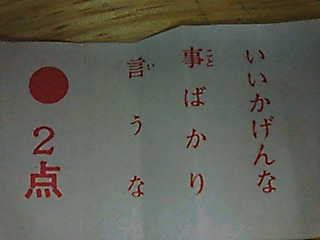 いいかげんな
事ばかり
言うな
●2点